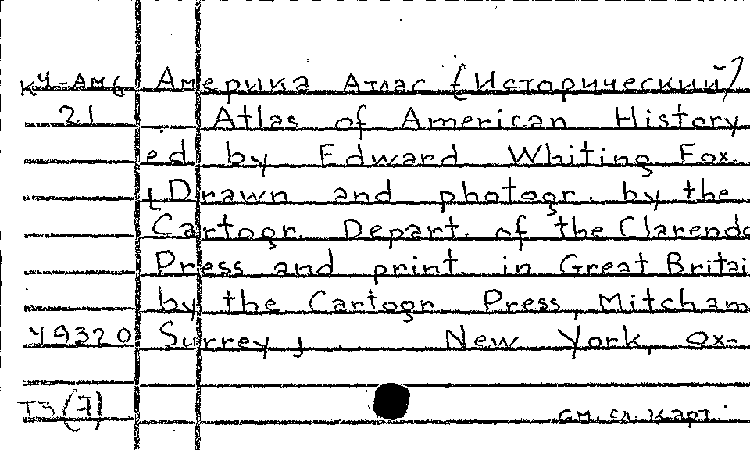 КЧ-Ам6 Америка Атлас [Исторический]
21 Atlas of American History
ed by Edward Whiting Fox.
[Drawn and photogr. by the
Cartogr. Depart. of the Clarendo
Press and print in Great Britai
by the Cartogr Press, Mitcham
Surrey]. New York, Ox-
Ч9320
ТЗ(7) см. сл. карт.